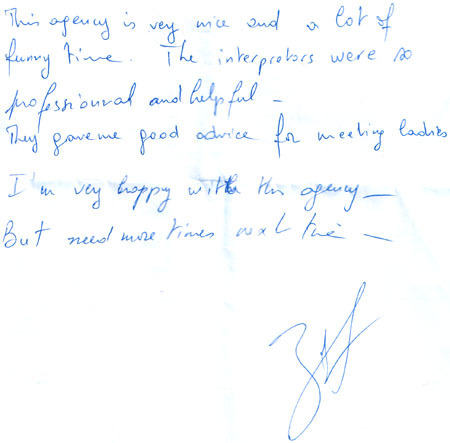 This agency is very nice and a lot of
funny time. The interpretors were so
professionnal and helpful _
They gave me good advice for meeting ladies
I'm very happy with this agency _
But need more times next time _